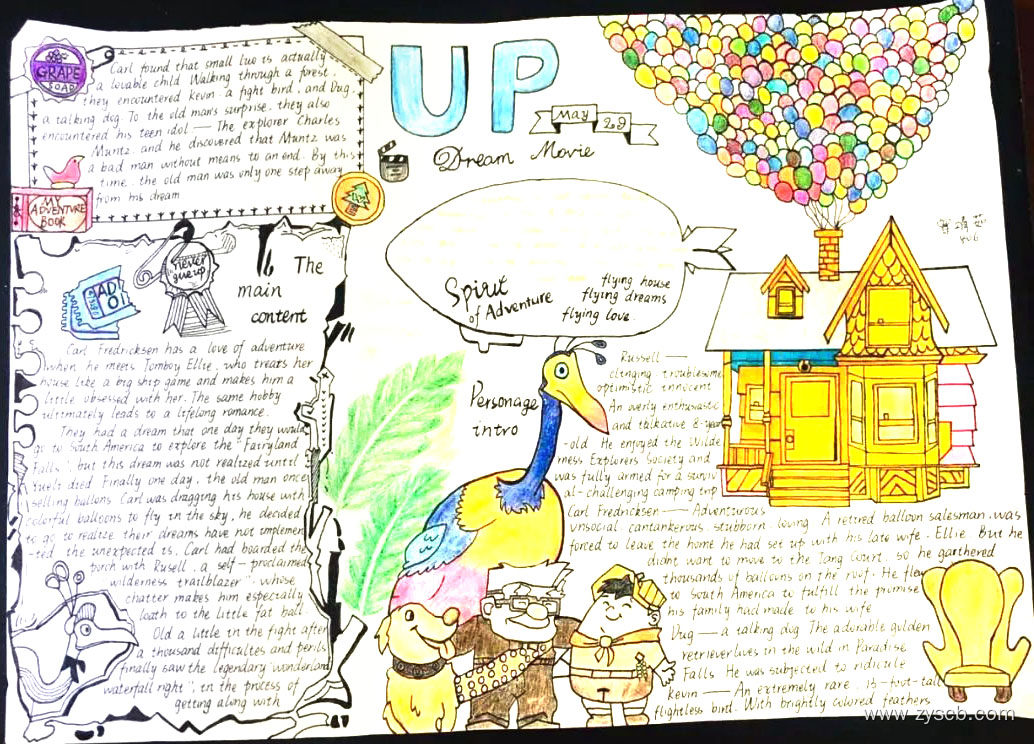 UP
May 29
Dream Movie
GRAPE
SOAP
Carl found that small luo is actually
a lovable child. Walking through a forest,
they encountered Kevin, a fight bird, and Dug,
a talking dog. To the old man's surprise, they also
encountered his teen idol — The explorer Charles
Muntz, and he discovered that Muntz was
a bad man without means to an end. By this
time, the old man was only one step away
from his dream
MY
ADVENTURE
BOOK
never
give up
The
main
content
Carl Fredricksen has a love of adventure
when he meets Tomboy Ellie, who treats her
house like a big ship game and makes him a
little obsessed with her. The same hobby
ultimately leads to a lifelong romance.
They had a dream that one day they would
go to South America to explore the "Fairyland
Falls", but this dream was not realized until
died Finally one day, the old man once
selling ballons Carl was dragging his house with
colorful balloons to fly in the sky, he decided
to go to realize their dreams have not implemen
-ted the unexpected is, Carl had boarded the
porch with Rusell, a self-proclaimed
wilderness trailblazer", whose
chatter makes him especially
loath to the little fat ball
Old a little in the fight after
a thousand difficulties and perils
finally saw the legendary "wonderland
waterfall right", in the process of
getting along with
Spirit
of Adventure
flying house
flying dreams
flying love
Personage
intro
Russell —
clinging troublesome
optimistic innocent
An overly enthusiastic
and talkative 8-year
-old. He enjoyed the Wilde
rness Explorers Society and
was fully armed for a surviv
al-challenging camping trip
Carl Fredricksen — Adventurous
unsocial cantankerous stubborn loving A retired balloon salesman was
forced to leave the home he had set up with his late wife, Ellie. But he
didnt want to move to the Court, so he garthered
thousands of balloons on the roof. He flew
to South America to fulfill the promise
his family had made to his wife
Dug — a talking dog The adorable golden
retriever lives in the wild in Paradise
Falls. He was subjected to ridicule
Kevin — An extremely rare, 13-foot-tall
flightless bird. With brightly colored feathers
www.zyscb.com